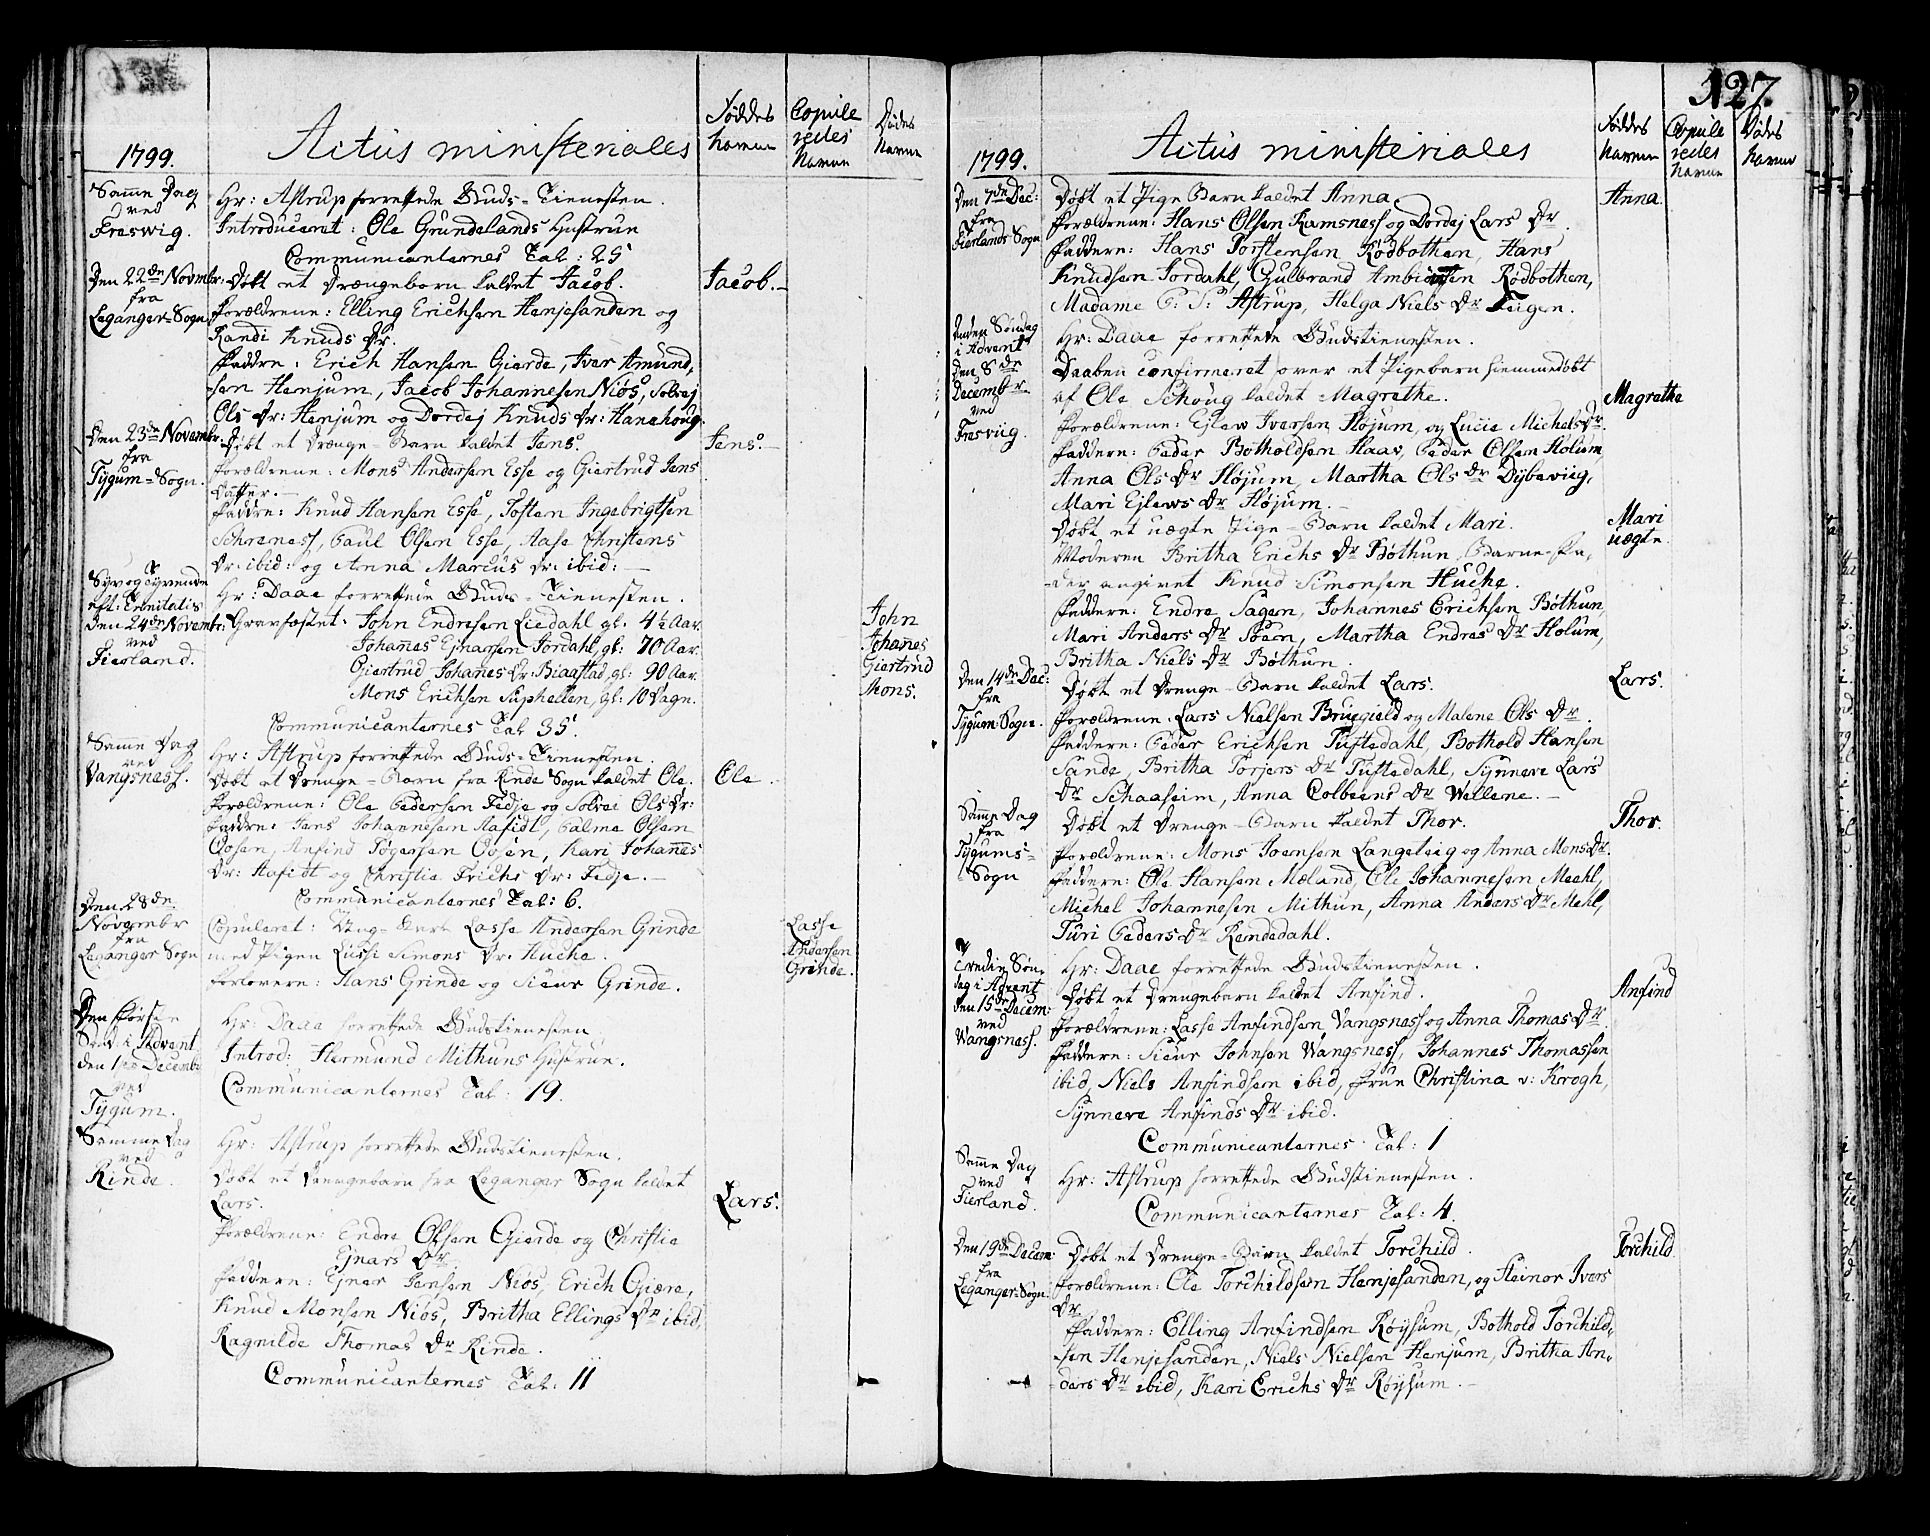 1799.
Actus ministeriales
Föddes Navne
Copuleredes Navne
Dödes Navne
Samme Dag ved Freswig.
Hr: Astrup forrettede Guds-Tienesten.
Introduceret: Ole Grundelands Hustrue
Communicanternes Tal: 25
Den 22de Novembr: fra Leganger-Sogn
Döbt et Drængebarn kaldet Jacob.
Jacob.
Forældrene: Elling Erichsen Henjesanden og
Randi Knuds Dr.
Faddre: Erich Hansen Gierde, Iver Amund-
sen Henjum, Jacob Johannesen Niøs, Solvej
Ols Dr: Henjum og Dordej Knuds Dr: Hanehoug.
Den 23de Novembr. fra Tygum-Sogn.
Döbt et Drænge-Barn kaldet Jens.
Jens.
Forældrene: Mons Andersen Esse og Giertrud Jens
Datter.
Faddre: Knud Hansen Esse, Tosten Ingebrigtsen
Schreness, Paul Olsen Esse, Aase Christens
Dr: ibid: og Anna Marcus Dr: ibid:
Syv og Tyvende eft: Trinitatis Den 24de Novembr: ved Fierland.
Hr: Daae forrettede Guds-Tienesten.
Gravfæstet: John Endresen Liedahl gl: 4½ Aar.
John
Johanes Ejnarsen Jordahl, gl: 70 Aar.
Johanes
Giertrud Johanes Dr: Biaastad, gl: 90 Aar.
Giertrud
Mons Erichsen Suphellen, gl: 10 Dagn.
Mons.
Communicanternes Tal 35.
Samme Dag ved Vangsness.
Hr: Astrup forrettede Guds-Tienesten.
Döbt et Drenge-Barn fra Rinde Sogn kaldet Ole.
Ole.
Forældrene: Ole Pedersen Fedje og Solvei Ols Dr:
Faddre: Jens Johannesen Aafedt, Palme Olsen
Oosen, Anfind Tögersen Oosen, Kari Johannes
Dr: Aafidt og Christie Erichs Dr: Fedje.
Communicanternes Tal: 6.
Den 28de Novembr fra Leganger Sogn
Copuleret: Ung-Karl Lasse Andersen Grinde
Lasse Andersen Grinde.
med Pigen Lussi Simons Dr: Huche.
Forlovere: Hans Grinde og Siur Grinde.
Den Förste Sönd: i Advent den 1ste Decembr ved Tygum.
Hr: Daae forrettede Gudstienesten
Introd: Hermund Mithuns Hustrue.
Communicanternes Tal: 19.
Samme Dag ved Rinde.
Hr: Astrup forrettede Gudstienesten.
Döbt et Drengebarn fra Leganger Sogn kaldet
Lars.
Lars.
Forældrene: Endre Olsen Gierde og Christie
Ejnars Dr.
Faddere: Ejner Jensen Niøs, Erich Giære,
Knud Monsen Niøs, Britha Ellings Dr ibid,
Ragnilde Thomas Dr Rinde.
Communicanternes Tal: 11
127.
1799.
Actus ministeriales
Föddes Navne
Copuleredes Navne
Dödes Navne
Den 7de Dec: fra Fierlands Sogn
Döbt et Pige Barn kaldet Anna.
Anna.
Forældrene: Hans Olsen Ramsness og Dordej Lars Dr.
Faddere: Hans Torstensen Rödbothen, Hans
Knudsen Jordahl, Gulbrand Ambiörsen Rödbothen,
Madame C: S: Astrup, Helga Niels Dr Feigen.
Anden Söndag i Advent den 8de Decembr. ved Fresviig.
Hr: Daae forrettede Gudstienesten.
Daaben confirmeret over et Pigebarn hiemmedöbt
af Ole Schoug kaldet Magrethe.
Magrethe
Forældrene: Ejlew Iversen Højum, og Lucie Michels Dr.
Faddere: Peder Botholdsen Haav, Peder Olsen Holum,
Anna Ols Dr Højum, Martha Ols Dr Dybeviig,
Mari Ejlews Dr Højum.
Döbt et uægte Pige-Barn kaldet Mari.
Mari uægte.
Moderen Britha Erichs Dr Böthun, Barne-Fa-
der angivet Knud Simonsen Huche.
Faddere: Endre Sagen, Johannes Erichsen Böthun,
Mari Anders Dr Söen, Martha Endres Dr Holum,
Britha Niels Dr Böthun.
Den 14de Dec: fra Tygum-Sogn.
Döbt et Drenge-Barn kaldet Lars.
Lars.
Forældrene: Lars Nielsen Bruegield og Malene Ols Dr.
Faddere: Peder Erichsen Tuftedahl, Bothold Hansen
Sande, Britha Torjers Dr Tuftedahl, Synneve Lars
Dr Schaaheim, Anna Colbeens Dr Wellene.
Samme Dag fra Tygums-Sogn
Döbt et Drenge-Barn kaldet Thor.
Thor.
Forældrene: Mons Joensen Langeteig og Anna Mons Dr.
Faddere: Ole Hansen Mæland, Ole Johannesen Meehl,
Michel Johannesen Mithun, Anna Anders Dr Mehl,
Turi Peders Dr Rendedahl.
Tredie Söndag i Advent den 15de Decem: ved Wangsness.
Hr: Daae forrettede Gudstienesten.
Döbt et Drengebarn kaldet Anfind.
Anfind
Forældrene: Lasse Anfindsen Vangsness og Anna Thomas Dr.
Faddere: Siur Johnsen Wangsness, Johannes Thomassen
ibid, Niels Anfindsen ibid, Frue Christina v: Krogh,
Synneve Anfinds Dr ibid.
Communicanternes Tal: 1
Samme Dag ved Fierland.
Hr: Astrup forrettede Gudstienesten.
Communicanternes Tal: 4.
Den 19de Decem: fra Leganger-Sogn.
Döbt et Drenge-Barn kaldet Torchild.
Torchild.
Forældrene: Ole Torchildsen Henjesanden, og Steinor Ivers
Dr.
Faddere: Elling Anfindsen Röysum, Bothold Torchild-
sen Henjesanden, Niels Nielsen Henjum, Britha An-
ders Dr ibid, Kari Erichs Dr Röysum.